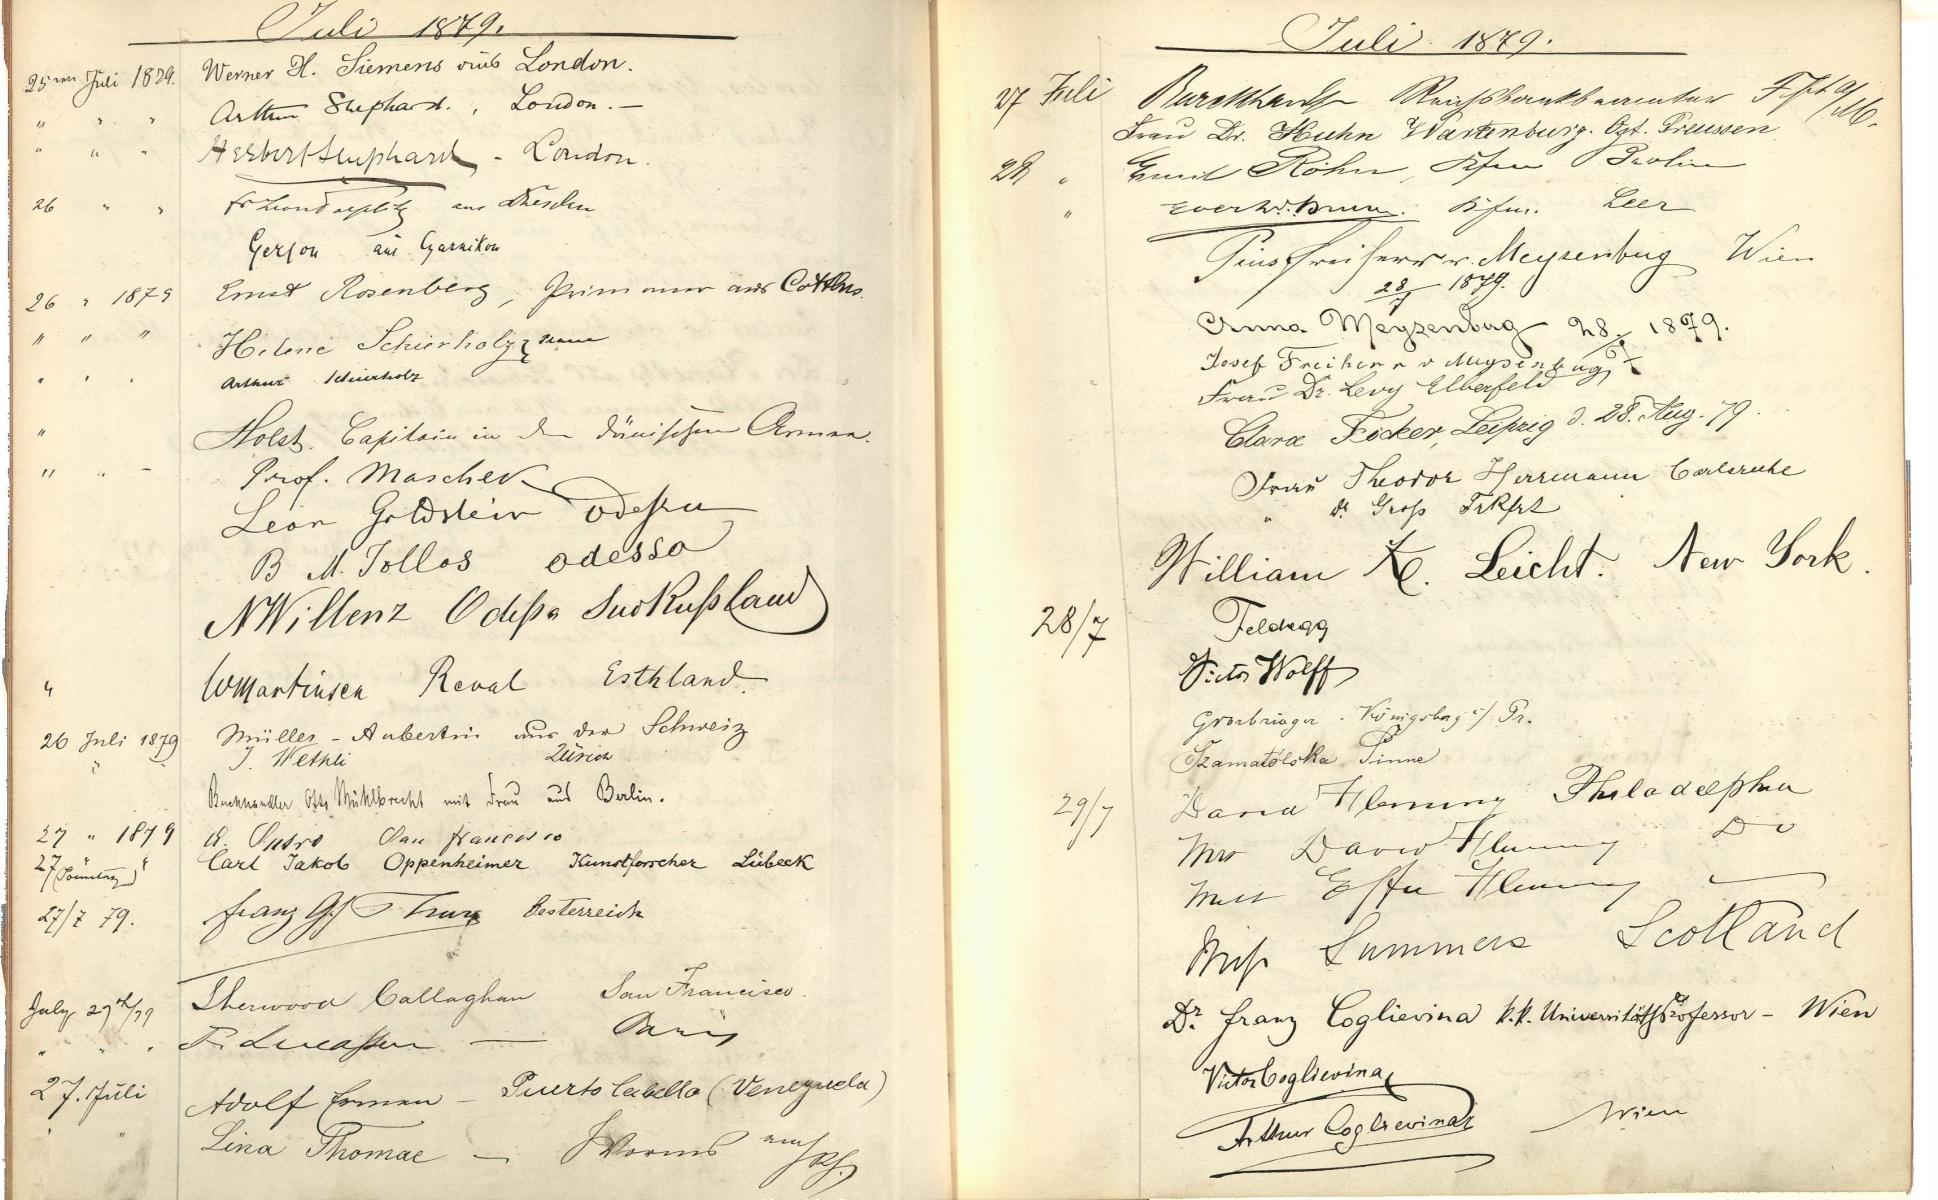 Juli 1879.
25ten Juli 1879. Werner H. Siemens aus London.
" " " Arthur Shephard., London. —
" " " Herbert Shephard - London.
26 " " aus Dresden
Gerson aus Czarnikow
26 " 1879 Ernst Rosenberg, Primaner aus Cottbus.
" " " Helene Schierholz
" " " Arthur Schierholz
" Holst. Capitain in der dänischen Armee.
" " - Prof. Maschek
Leon Goldstein Odessa
B M. Tollos Odessa
N Willenz Odeßa Sudrußland
" W Martinsen Reval Esthland.
26 Juli 1879 Müller - Aubertin aus der Schweiz
" " J. Wethli Zürich
Buchhändler Otto Mühlbrecht mit Frau aus Berlin.
27 " 1879 A. Sutro San Francisco
27 (Sonntag) " Carl Jakob Oppenheimer Kunstforscher Lübeck
27/7 79. Franz Gf Thun Oesterreich
July 27th/79 Sherwood Callaghan San Francisco.
" " " Paris
27. Juli Adolf Erman - Puerto Cabello (Venezuela)
" " Lina Thomae - Worms
Juli 1879.
27 Juli Burckhardt
Frau Dr. Huhn Wartenburg. Ogt. Preussen
28 " Emil Röhn, Kfm Berlin
" Kfm. Leer
Pius Freiherr v. Meysenbug Wien
28/7 1879.
Anna Meysenbug 28/7 1879.
Josef Freiherr v Meysenbug
Frau Dr. Levy Elberfeld
Clara Focker, Leipzig d. 28. Aug. 79.
Frau Theodor Herrmann Carlsruhe
" Dr Groß Frkfrt
William K. Leicht. New York.
28/7 Feldegg
Victor Wolff
Königsberg i/ Pr.
Szamatolska Pinne
29/7 David Fleming Philadelphia
Mrs David Fleming Do
Miss Effie Fleming
Miss Summers Scotland
Dr. Franz Coglievina k.k. Universitätsprofessor - Wien
Victor Coglievina
Arthur Coglievina Wien